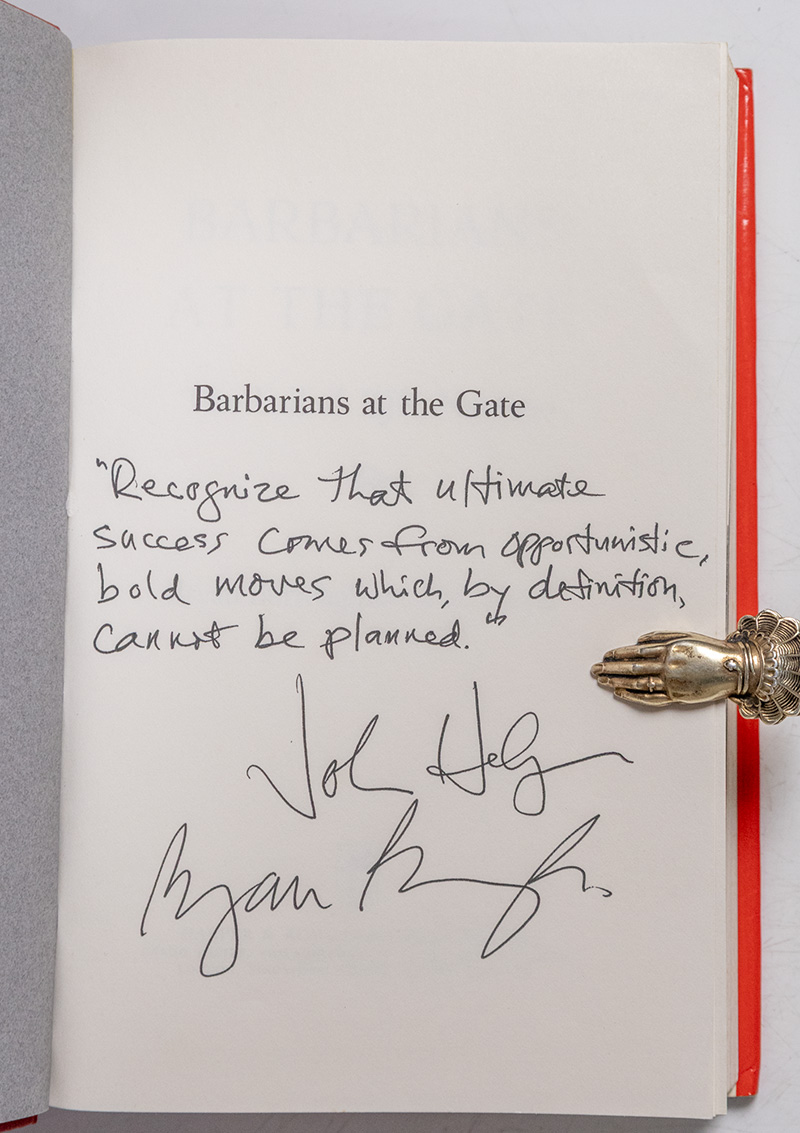 BARBARIANS
AT THE GATE
Barbarians at the Gate
"Recognize that ultimate
success comes from opportunistic,
bold moves which, by definition,
cannot be planned."
John Hel
Bryan